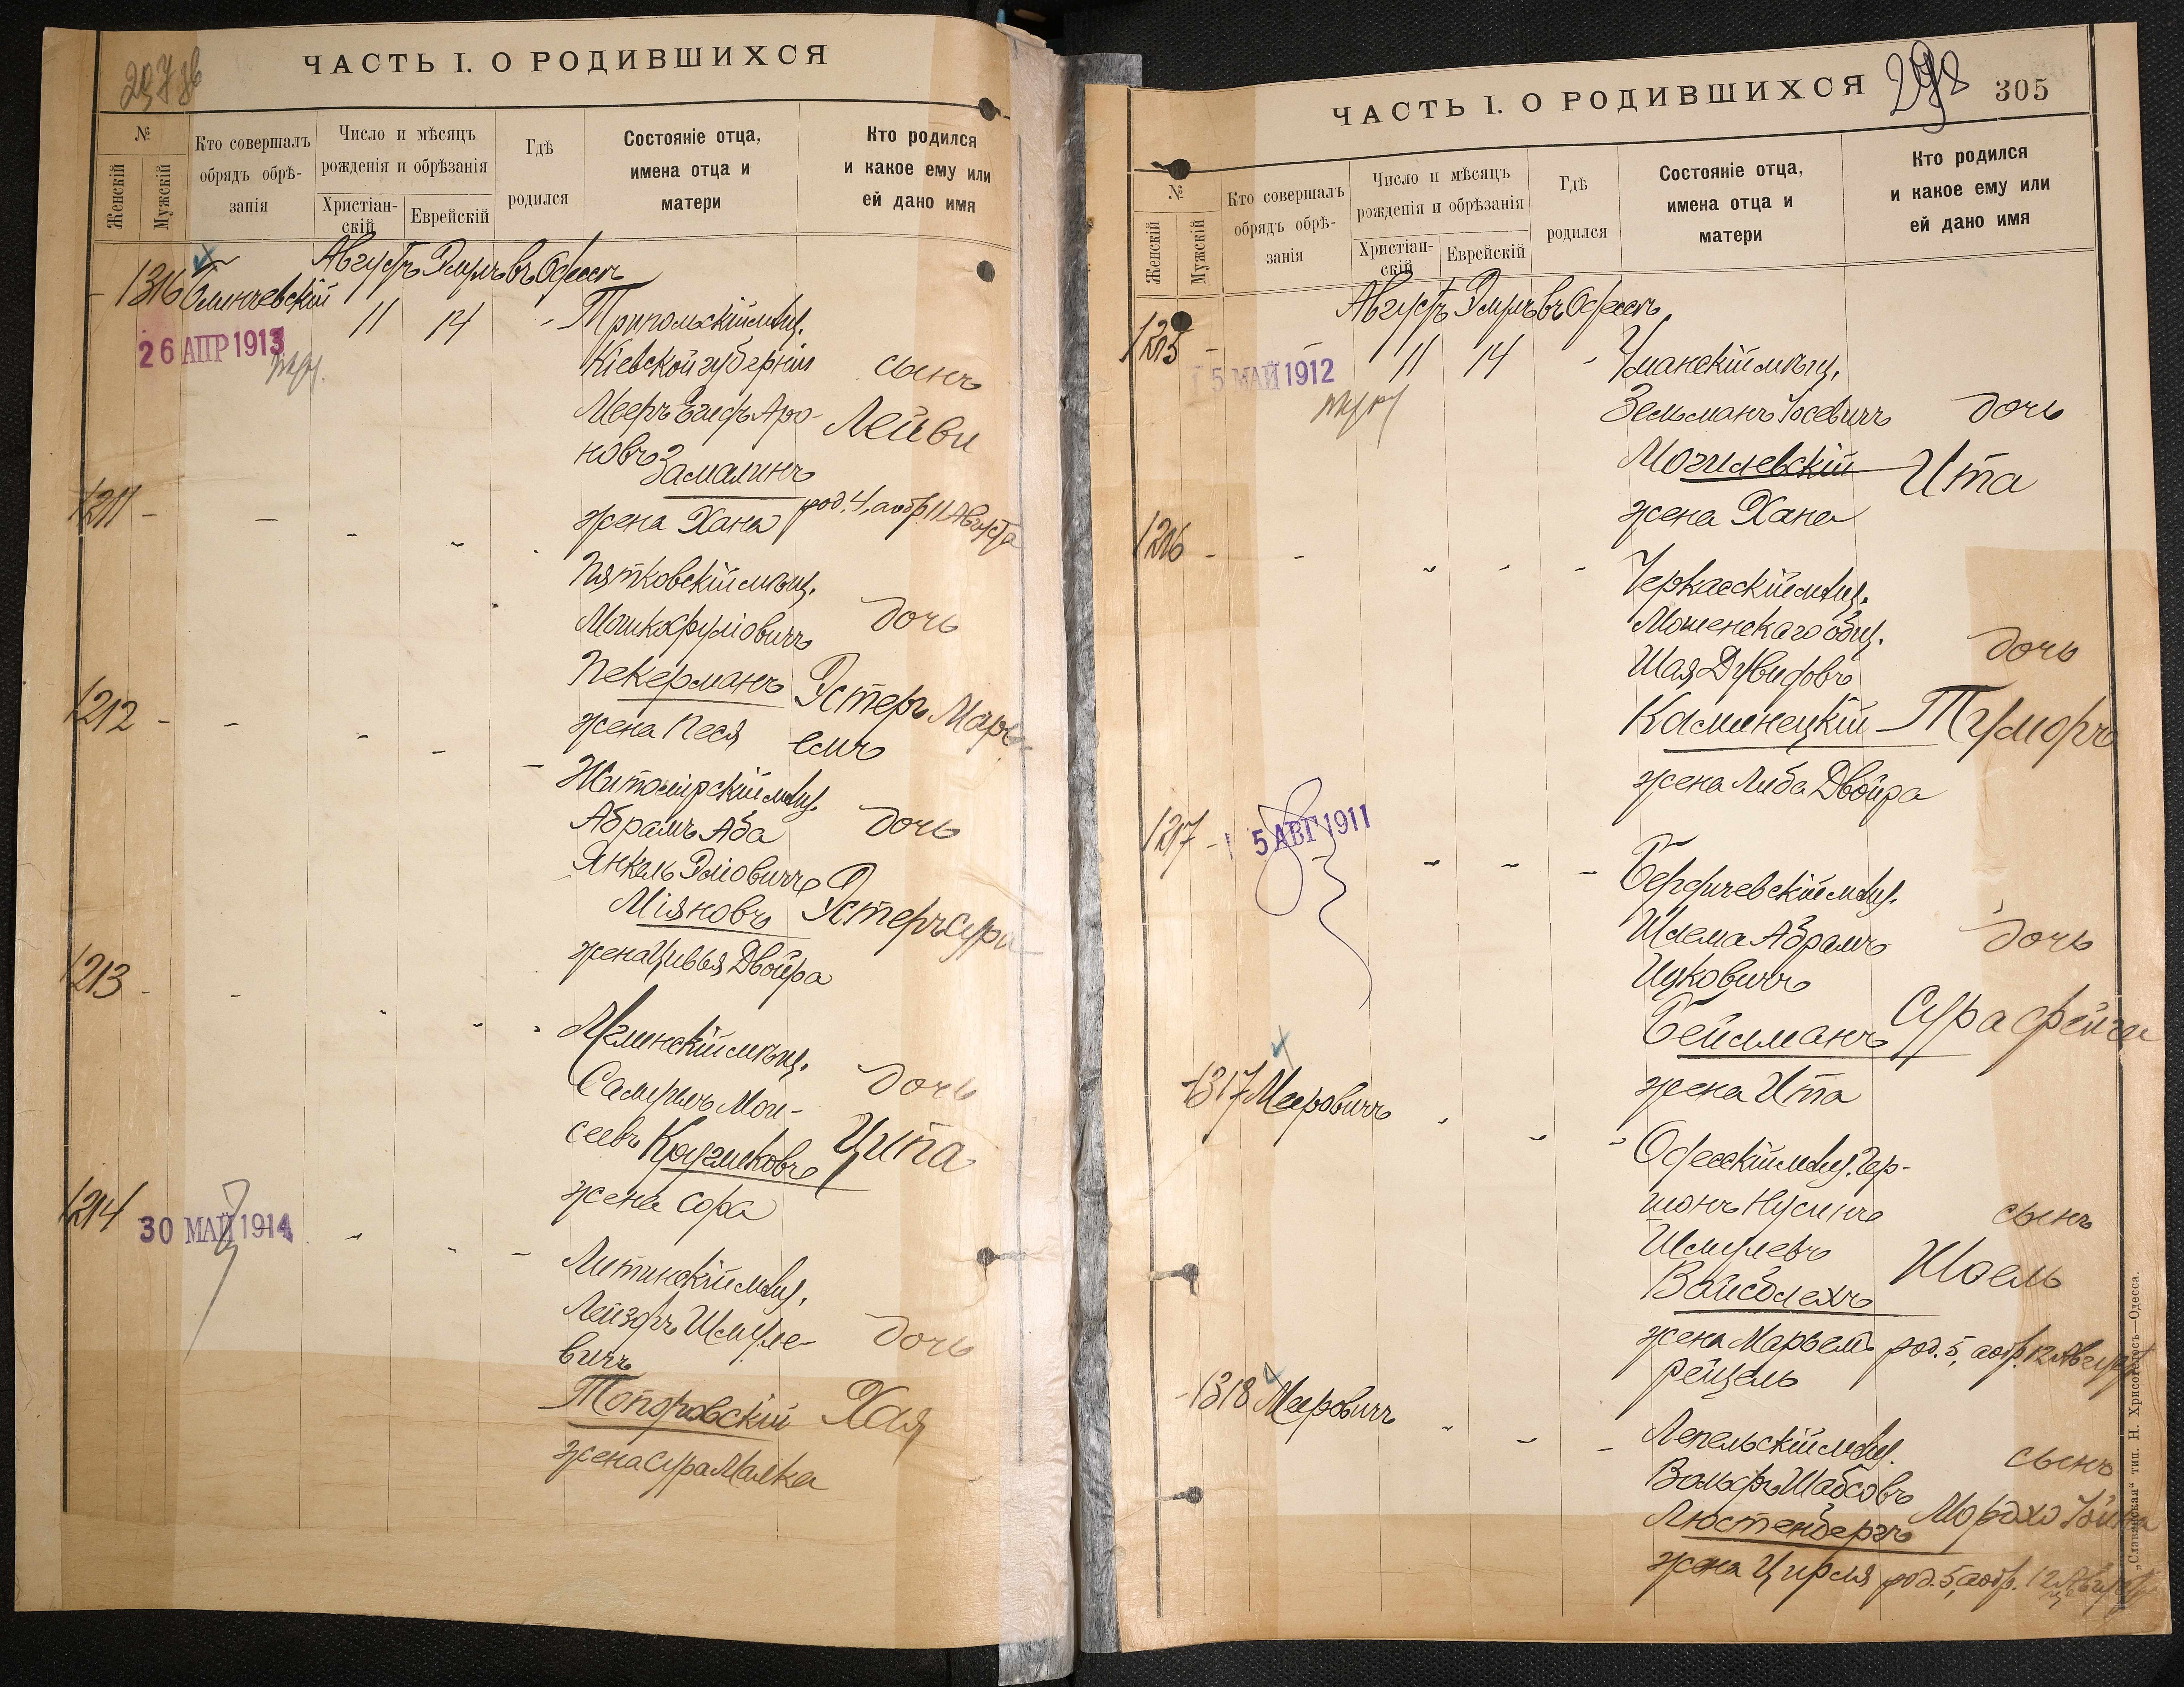 ЧАСТЬ I. О РОДИВШИХСЯ
№
Женскій
Мужскій
Кто совершалъ
обрядъ обрѣ-
занія
Число и мѣсяцъ
рожденія и обрѣзанія
Христіан-
скій
Еврейскій
Гдѣ
родился
Состояніе отца,
имена отца и
матери
Кто родился
и какое ему или
ей дано имя
Августъ Элулъ въ Одессѣ
1316
26 АПР 1913
11 14 - Трипольскій мѣщ.
Кіевской губерніи сынъ
Мееръ Аро-
новъ Лейви
Замалинъ
жена Хана род. 4, а обр. 11 Августа
1211 -
Пятковскій мѣщ.
дочь
Пекерманъ Эстеръ Марь-
жена Песя емъ
1212 -
Житомірскій мѣщ.
Абрамъ Аба дочь
Янкель Эліовичъ
Міяновъ Эстеръ Сура
жена Цивья Двойра
1213 -
мѣщ.
Самуилъ Мои- дочь
сеевъ Кругликовъ Ципа
жена Сора
1214
30 МАЙ 1914
Литинскій мѣщ.
Лейзоръ Шмуле- дочь
вичъ
Топоровскій Хая
жена Сура Малка
ЧАСТЬ I. О РОДИВШИХСЯ
298
305
№
Женскій
Мужскій
Кто совершалъ
обрядъ обрѣ-
занія
Число и мѣсяцъ
рожденія и обрѣзанія
Христіан-
скій
Еврейскій
Гдѣ
родился
Состояніе отца,
имена отца и
матери
Кто родился
и какое ему или
ей дано имя
Августъ Элулъ въ Одессѣ
1215 -
5 МАЙ 1912
11 14 - Уманскій мѣщ.
Зельманъ Іосевичъ дочь
Могилевскій Ита
жена Хана
1216 -
Черкасскій мѣщ.
Мошенскаго общ.
Шая Дувидовъ дочь
Каминецкій
жена Либа Двойра
1217 -
5 АВГ 1911
Бердичевскій мѣщ.
Шлема Абрамъ дочь
Ицковичъ
Бейсманъ Сура Фейга
жена Ита
1317 Мееровичъ
Одесскій мѣщ. Гер-
шонъ Нусинъ сынъ
Шмулевъ
Вайсблехъ Іоель
жена Марьемъ род. 5, а обр. 12 Августа
Рейцель
1318 Мееровичъ
Лепельскій мѣщ. сынъ
Вольфъ Шабсовъ
Люстенбергъ Мордхо
жена Цирля род. 5, а обр. 12 Августа
„Славянская“ тип. Н. Хрисогелосъ—Одесса.